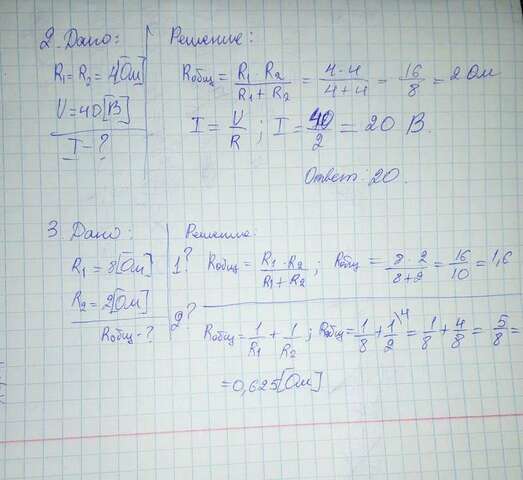 2. Дано:
R₁ = R₂ = 4[Ом]
U = 40[В]
I - ?
Решение:
Rобщ = R₁ · R₂ / R₁ + R₂ = 4 · 4 / 4 + 4 = 16 / 8 = 2 Ом
I = U / R ; I = 40 / 2 = 20 В.
Ответ: 20.
3. Дано:
R₁ = 8[Ом]
R₂ = 2[Ом]
Rобщ - ?
Решение:
1? Rобщ = R₁ · R₂ / R₁ + R₂ ; Rобщ = 8 · 2 / 8 + 2 = 16 / 10 = 1,6
2? Rобщ = 1 / R₁ + 1 / R₂ ; Rобщ = 1 / 8 + 1 / 2 \4 = 1 / 8 + 4 / 8 = 5 / 8 =
= 0,625[Ом]